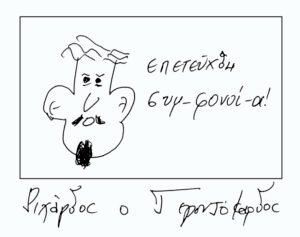 επετεύχθη
συμ-φονοί-α!
Ριχάρδος ο Γεροντόκαρδος